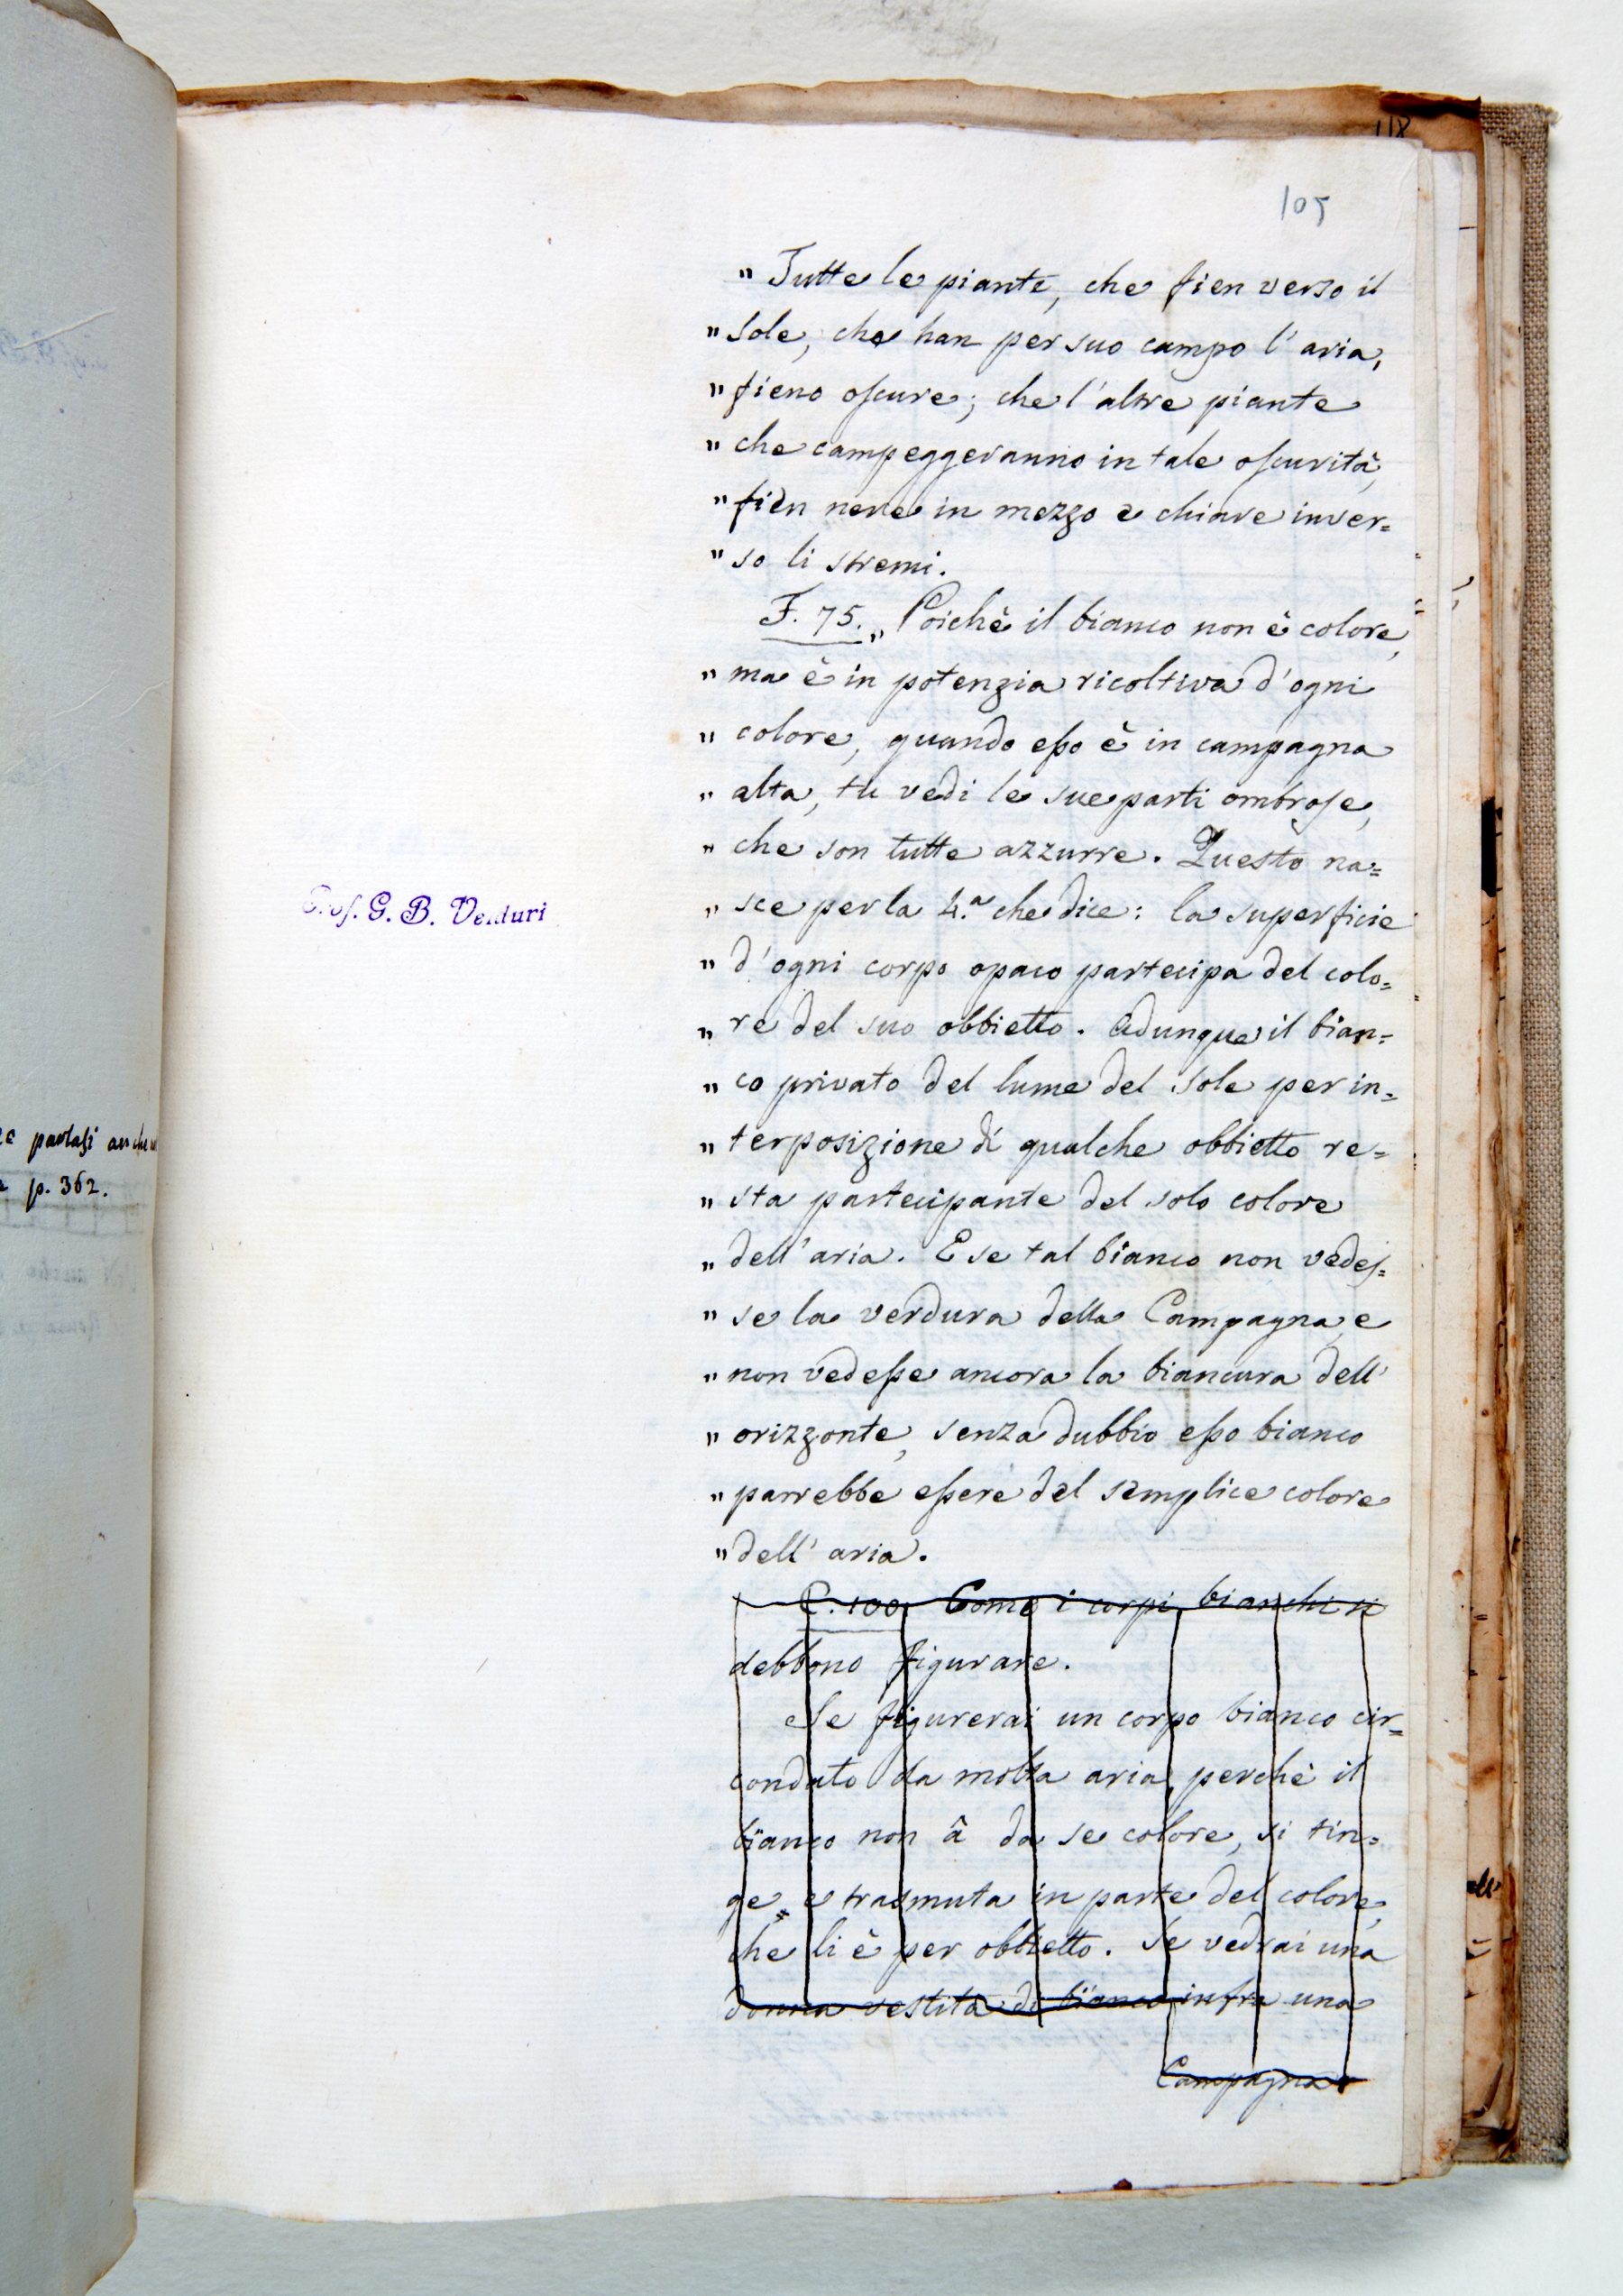 118
105
" Tutte le piante, che fien verso il
" sole, che han per suo campo l'aria,
" fieno oscure; che l'altre piante
" che campeggeranno in tale oscurità,
" fien nere in mezzo e chiare inver=
" so li stremi.
F. 75. „ Poichè il bianco non è colore,
" ma è in potenzia ricoltiva d'ogni
" colore, quando esso è in campagna
" alta, tu vedi le sue parti ombrose,
" che son tutte azzurre. Questo na=
" sce per la 4.ª che dice: la superficie
" d'ogni corpo opaco partecipa del colo=
" re del suo obbietto. Adunque il bian=
" co privato del lume del sole per in=
" terposizione di qualche obbietto re=
" sta partecipante del solo colore
" dell'aria. E se tal bianco non vedes=
" se la verdura della Campagna, e
" non vedesse ancora la biancura dell'
" orizzonte, senza dubbio esso bianco
" parrebbe essere del semplice colore
" dell'aria.
C. 100. Come i corpi bianchi si
debbono figurare.
Se figurerai un corpo bianco cir=
condato da molta aria, perchè il
bianco non â da se colore, si tin=
ge, e trasmuta in parte del colore,
che li è per obbietto. Se vedrai una
donna vestita di bianco infra una
Campagna
Prof. G. B. Venturi
parlasi anche
p. 362.